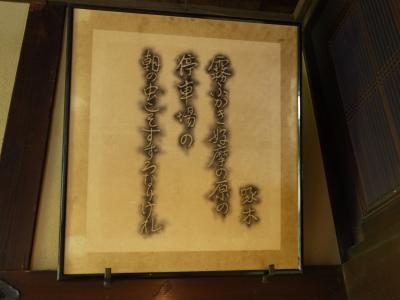 啄木
霧ふかき好摩の原の
停車場の
朝の虫こそすずろなりけれ